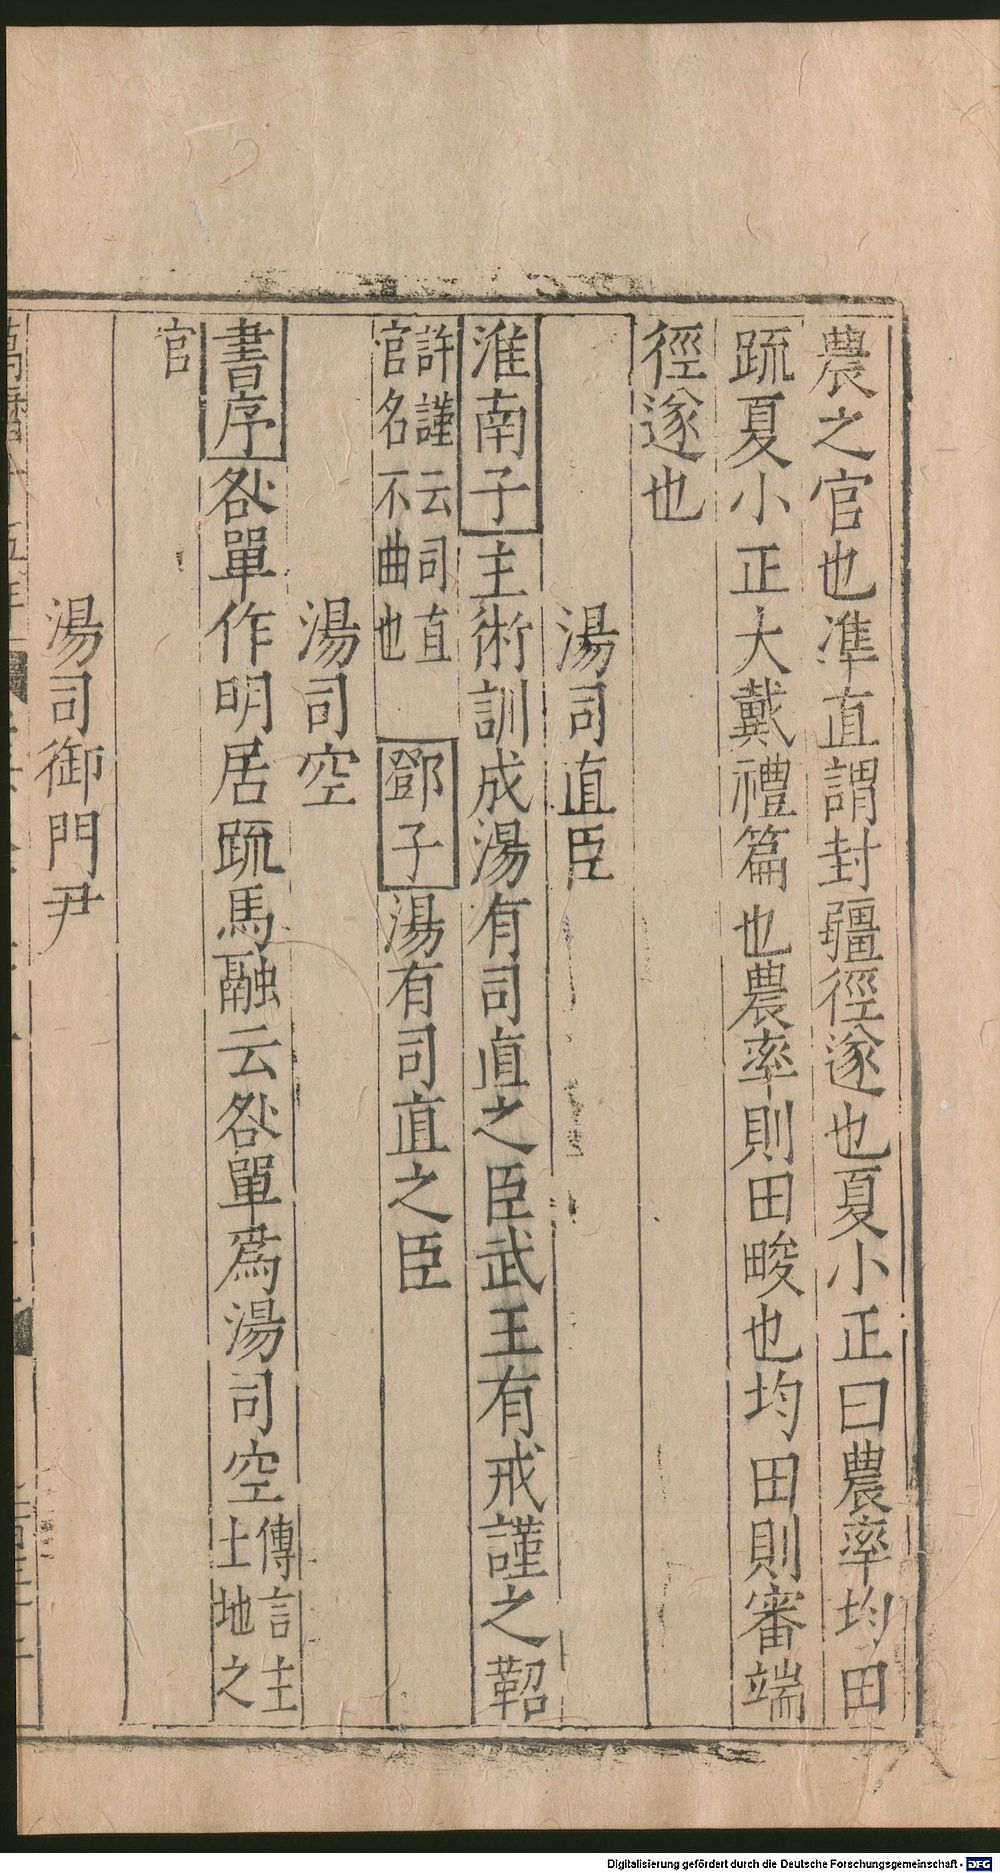 農之官也準直謂封疆徑遂也夏小正曰農率均田
䟽夏小正大戴禮篇也農率則田畯也均田則審端
徑遂也
湯司直臣
淮南子主術訓成湯有司直之臣武王有戒謹之鞀
許謹云司直
官名不曲也
鄧子湯有司直之臣
湯司空
書序咎單作明居䟽馬融云咎單爲湯司空
傳言主
土地之
官
湯司御門尹
Digitalisierung gefördert durch die Deutsche Forschungsgemeinschaft - DFG